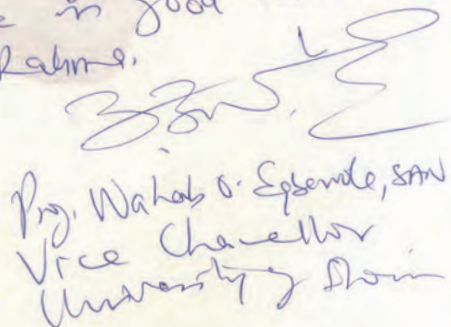 in good
Prof. Wahab O. Egbewole, SAN
Vice Chancellor
University of Ilorin